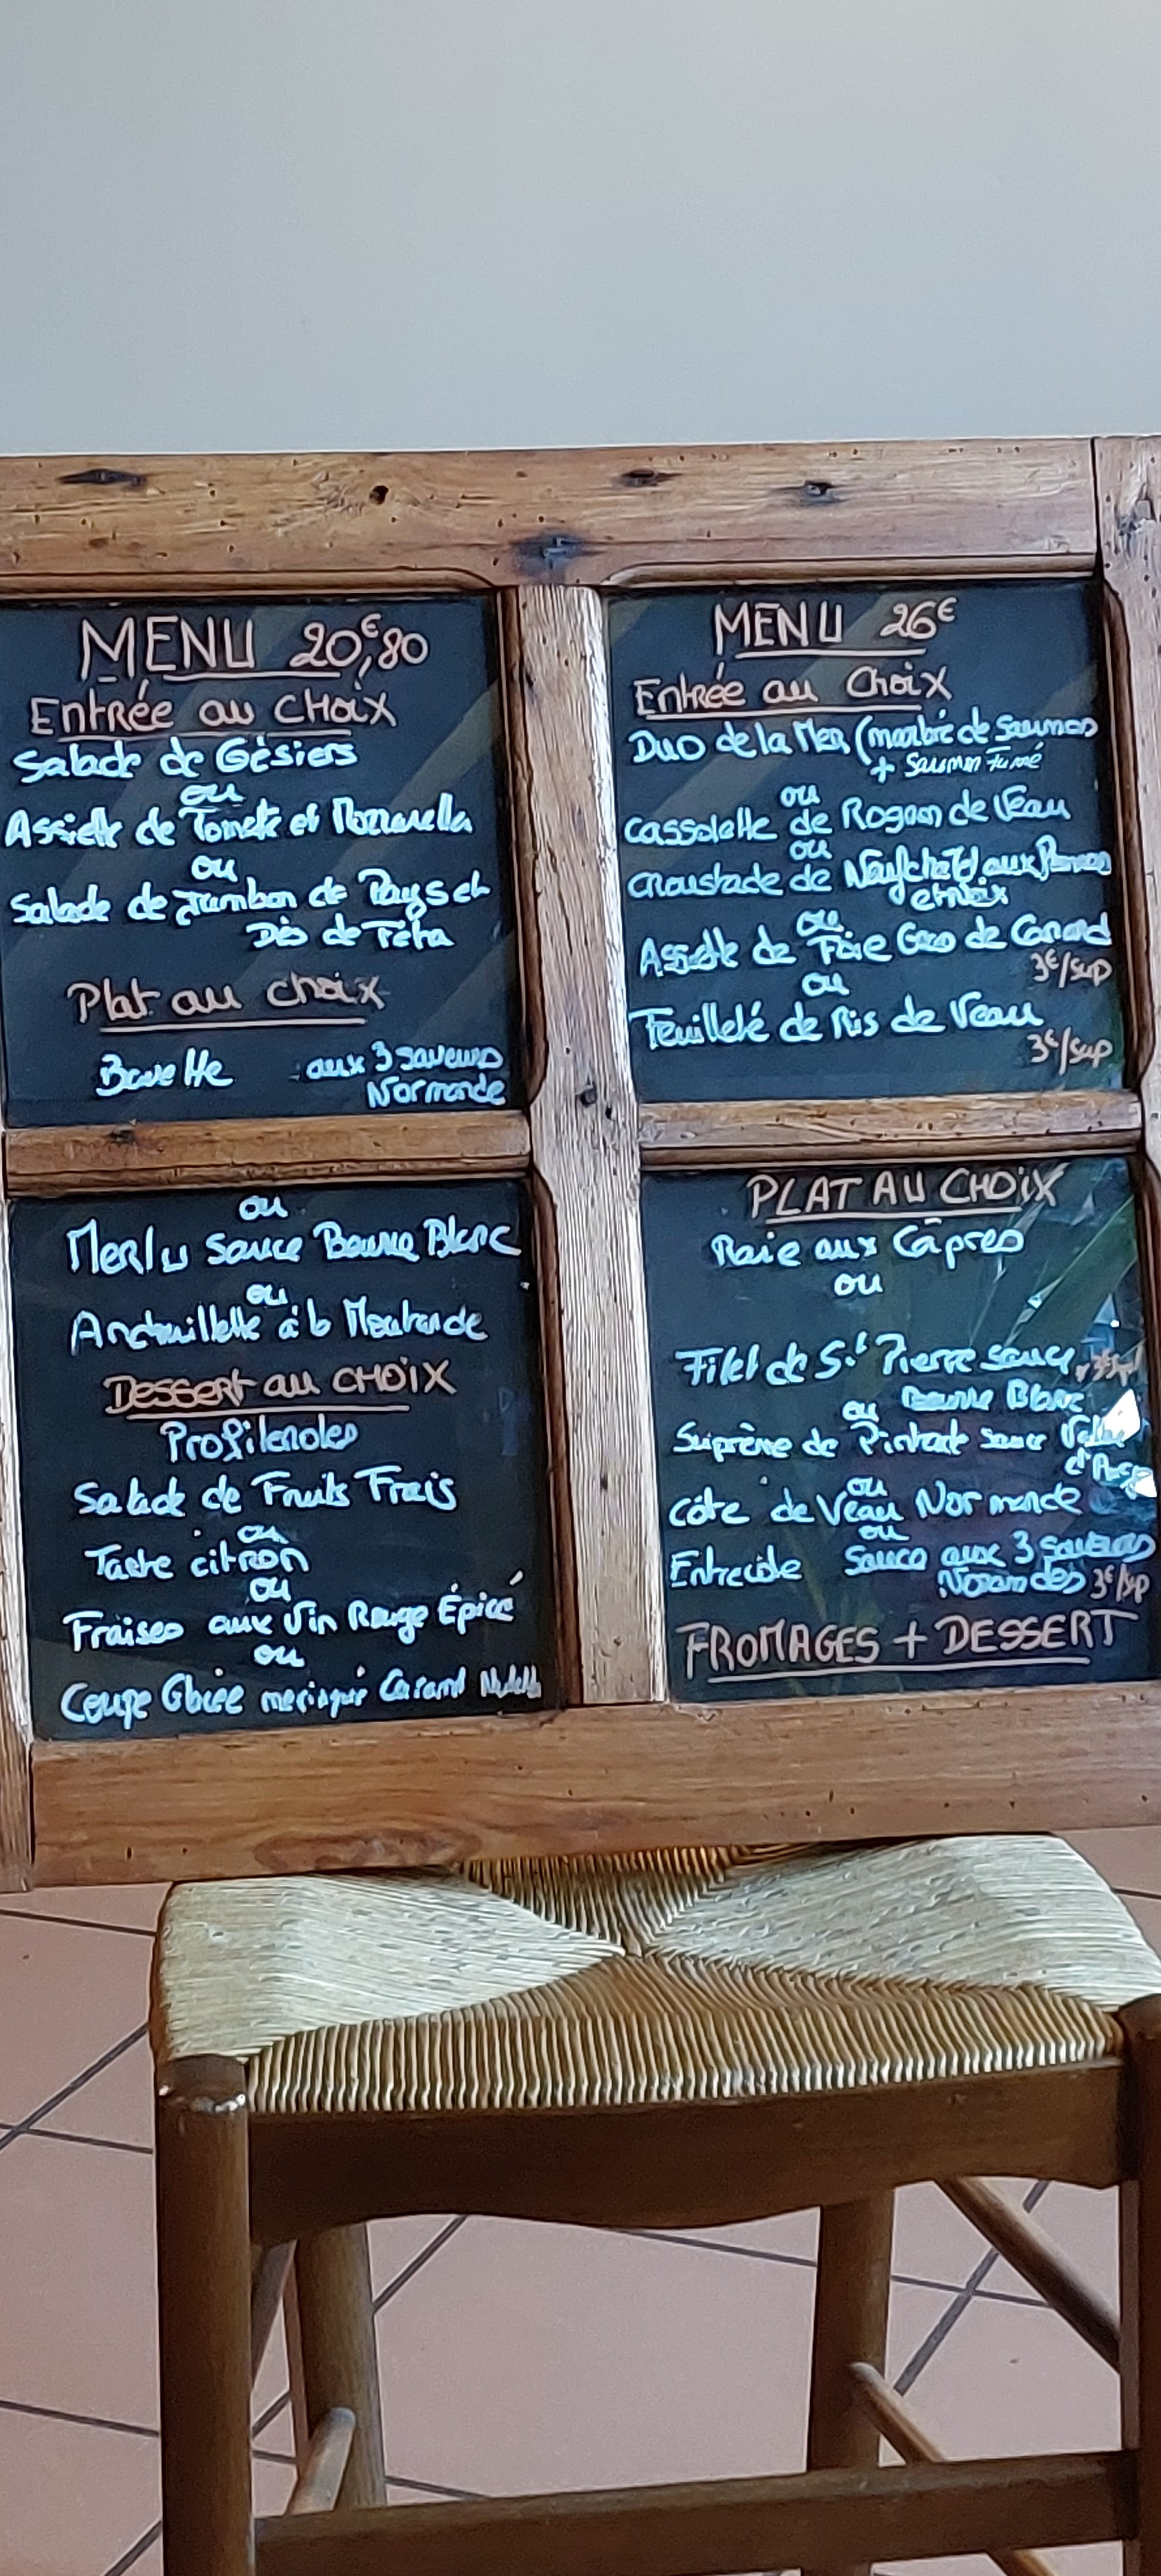 MENU 20,€80
Entrée au CHoiX
Salade de Gèsiers
ou
Assiette de Tomate et Mozzarella
ou
Salade de Jambon de Pays et
Dès de Féta
Plat au choix
Bavette aux 3 saveurs
Normande
ou
Merlu Sauce Beurre Blanc
ou
Andouillette à la Moutarde
Dessert au CHOiX
Profiteroles
Salade de Fruits Frais
ou
Tarte citron
ou
Fraises aux Vin Rouge Épicé
ou
Coupe Glacée meringué Caramel Nutella
MENU 26€
Entrée au Choix
Duo de la Mer (marbré de Saumon
+ Saumon Fumé
ou
Cassolette de Rognon de Veau
ou
Croustade de Neufchatel aux Pommes
et noix
ou
Assiette de Foie Gras de Canard
3€/sup
ou
Feuilleté de Ris de Veau
3€/sup
PLAT AU CHOiX
Raie aux Câpres
ou
Filet de St Pierre sauce
ou Beurre Blanc
Suprème de Pintade sauce Vallée
d'Auge
ou
Côte de Veau Normande
ou
Entrecôte Sauce aux 3 saveurs
Normandes 3€/sup
FROMAGES + DESSERT